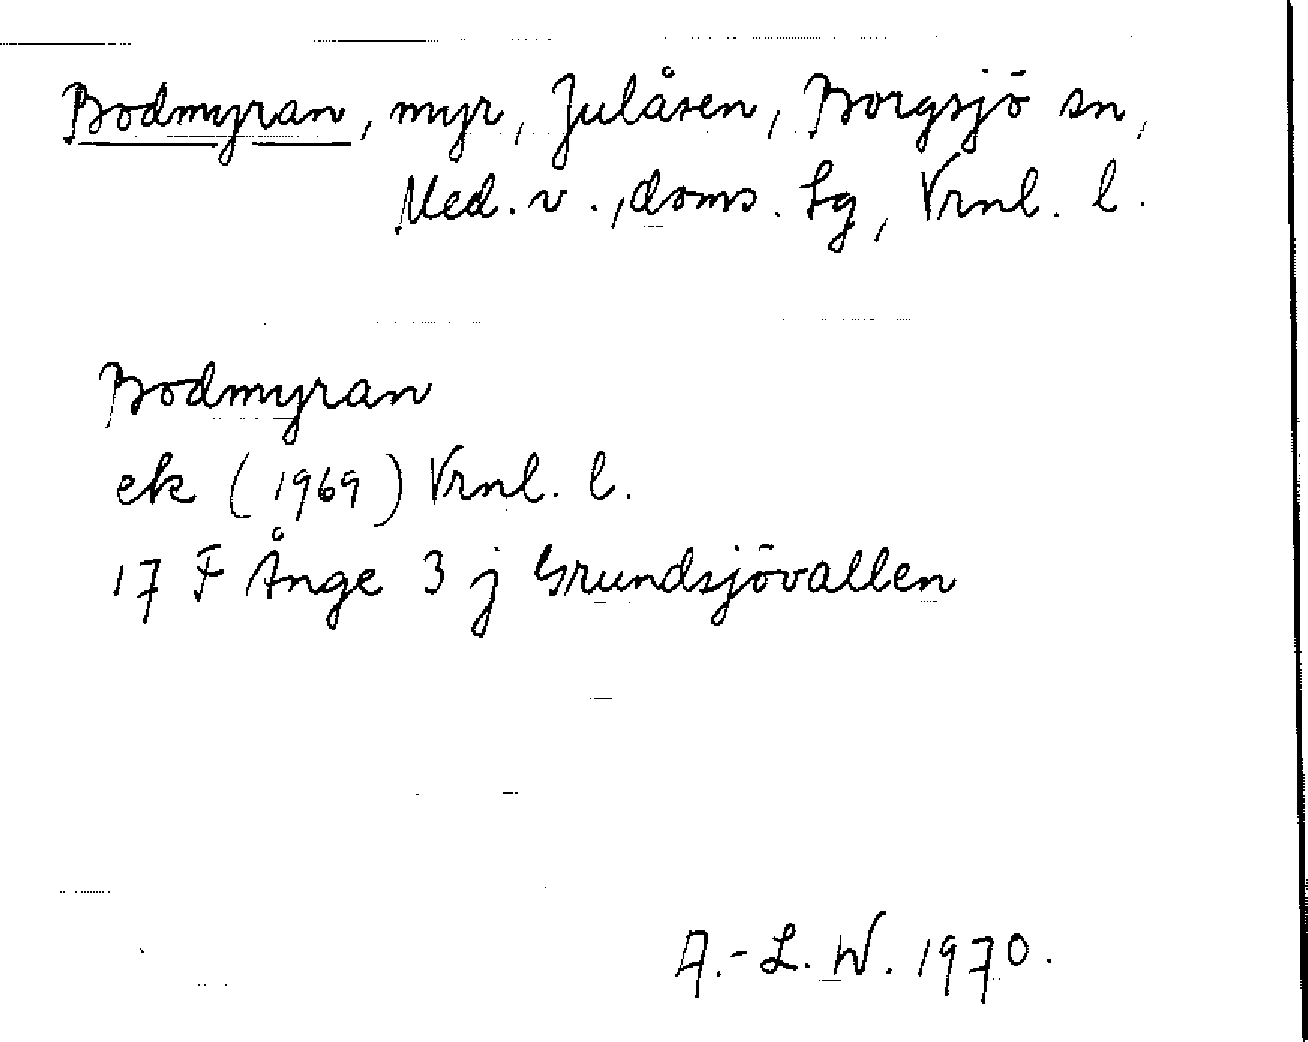 Bodmyran, myr, Julåsen, Borgsjö sn,
Med. v., doms. Lg, Vrnl. l.
Bodmyran
ek (1969) Vrnl. l.
17 F Ånge 3 j Grundsjövallen
A.-L. W. 1970.